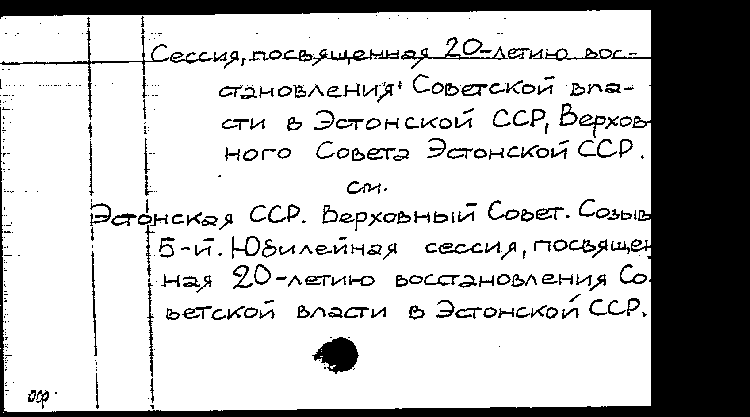 Сессия, посвященная 20-летию вос-
становления Советской вла-
сти в Эстонской ССР, Верхов-
ного Совета Эстонской ССР.
см.
Эстонская ССР. Верховный Совет. Созыв
5-й. Юбилейная сессия, посвящен
ная 20-летию восстановления Со
ветской власти в Эстонской ССР.